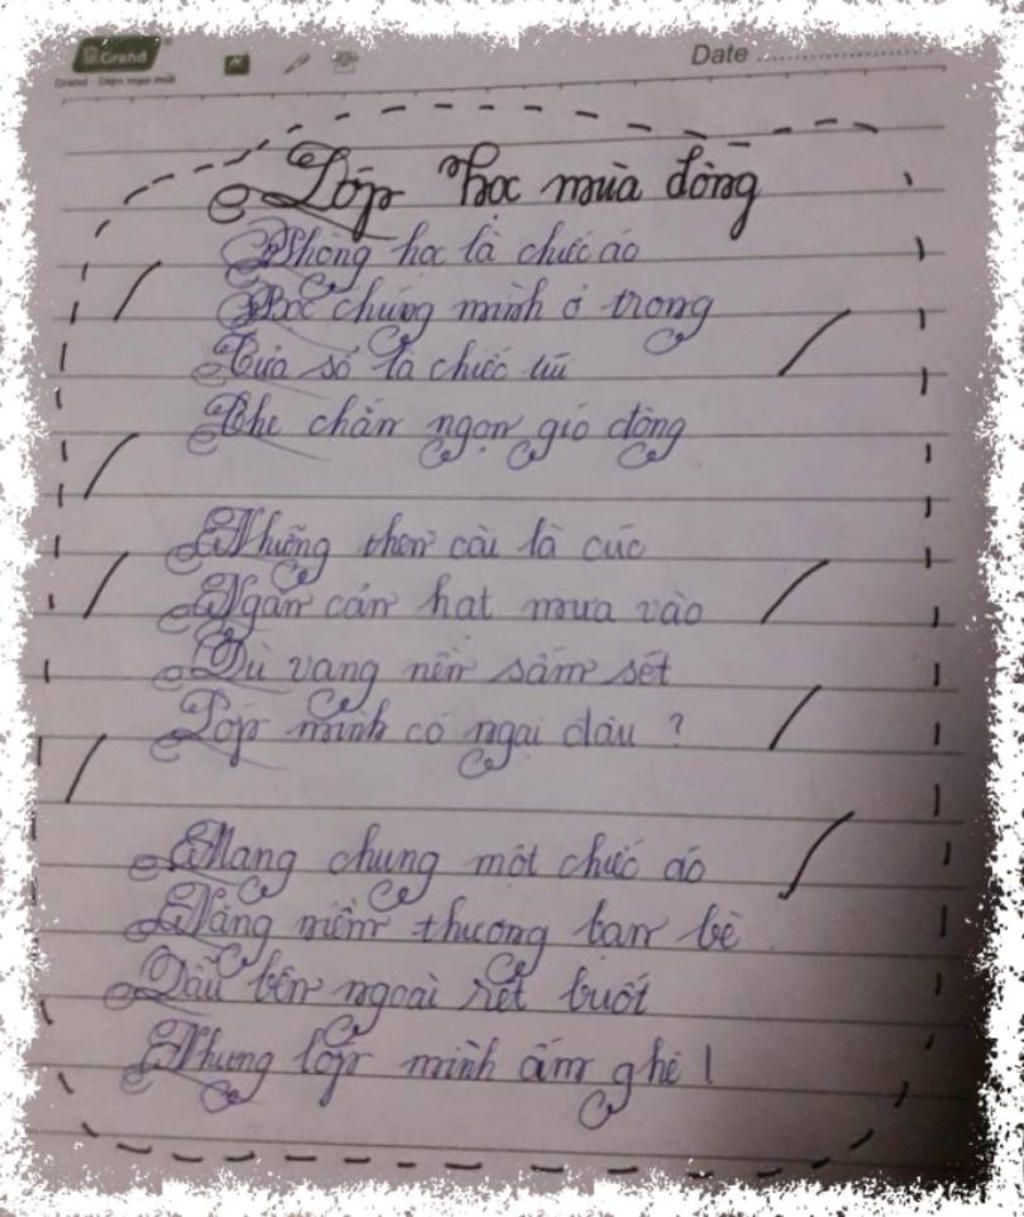 Grand
Date
Lớp học mùa đông
Phòng học là chiếc áo
Bọc chúng mình ở trong
Cửa sổ là chiếc túi
Che chắn ngọn gió đông
Những then cài là cúc
Ngăn cản hạt mưa vào
Dù vang rền sấm sét
Lớp mình có ngại đâu ?
Mang chung một chiếc áo
Nặng niềm thương bạn bè
Dẫu bên ngoài rét buốt
Nhưng lớp mình ấm ghê !